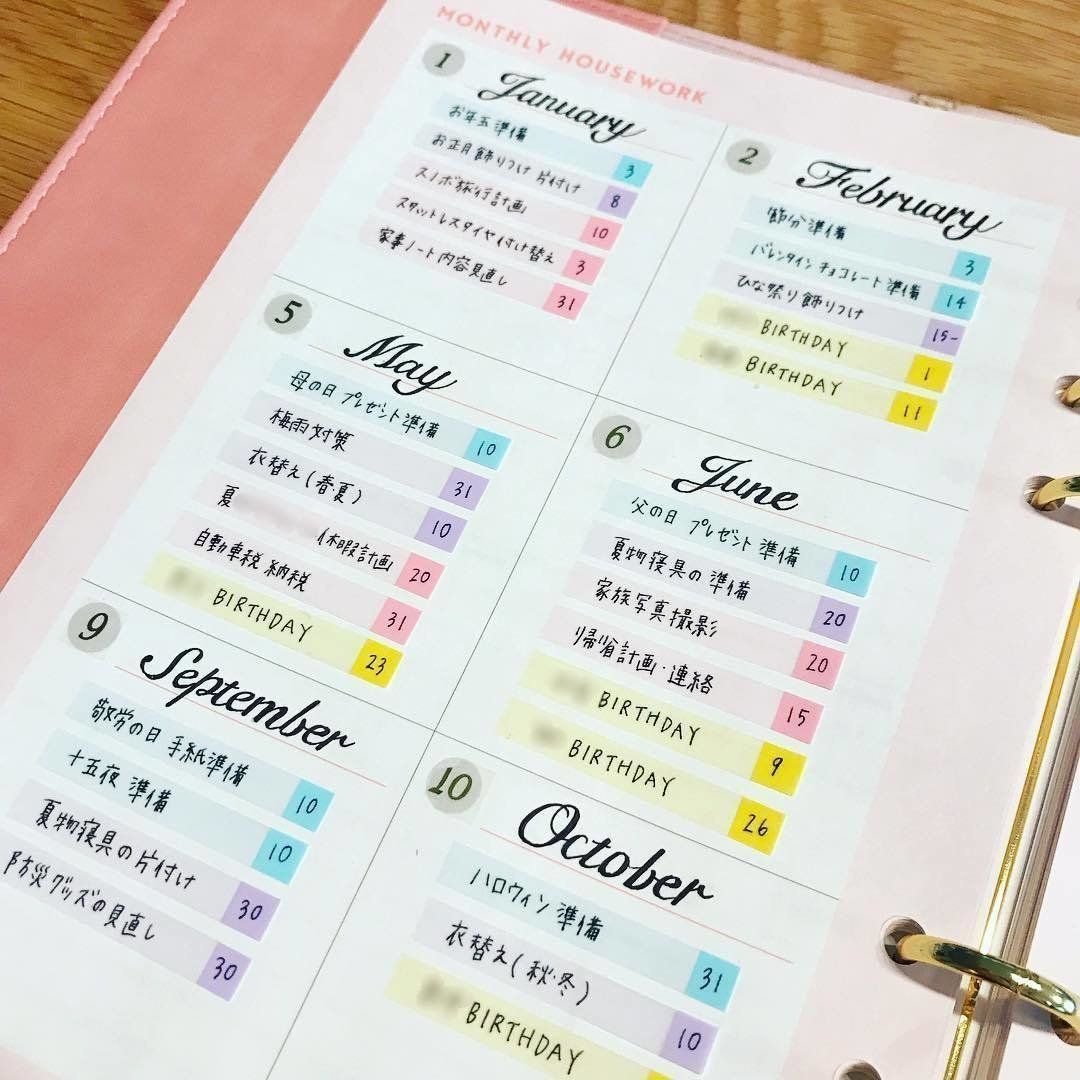 MONTHLY HOUSEWORK
1
January
お年玉準備 3
お正月飾りつけ 片付け 8
スノボ旅行計画 10
スタットレスタイヤ付け替え 3
家事ノート内容見直し 31
2
February
節分準備 3
バレンタイン チョコレート準備 14
ひな祭り飾りつけ 15-
BIRTHDAY 1
BIRTHDAY 11
5
May
母の日 プレゼント準備 10
梅雨対策 31
衣替え(春・夏) 10
夏 休暇計画 20
自動車税 納税 31
BIRTHDAY 23
6
June
父の日 プレゼント 準備 10
夏物寝具の準備 20
家族写真撮影 20
帰省計画・連絡 15
BIRTHDAY 9
BIRTHDAY 26
9
September
敬労の日 手紙準備 10
十五夜 準備 10
夏物寝具の片付け 30
防災グッズの見直し 30
10
October
ハロウィン 準備 31
衣替え(秋・冬) 10
BIRTHDAY